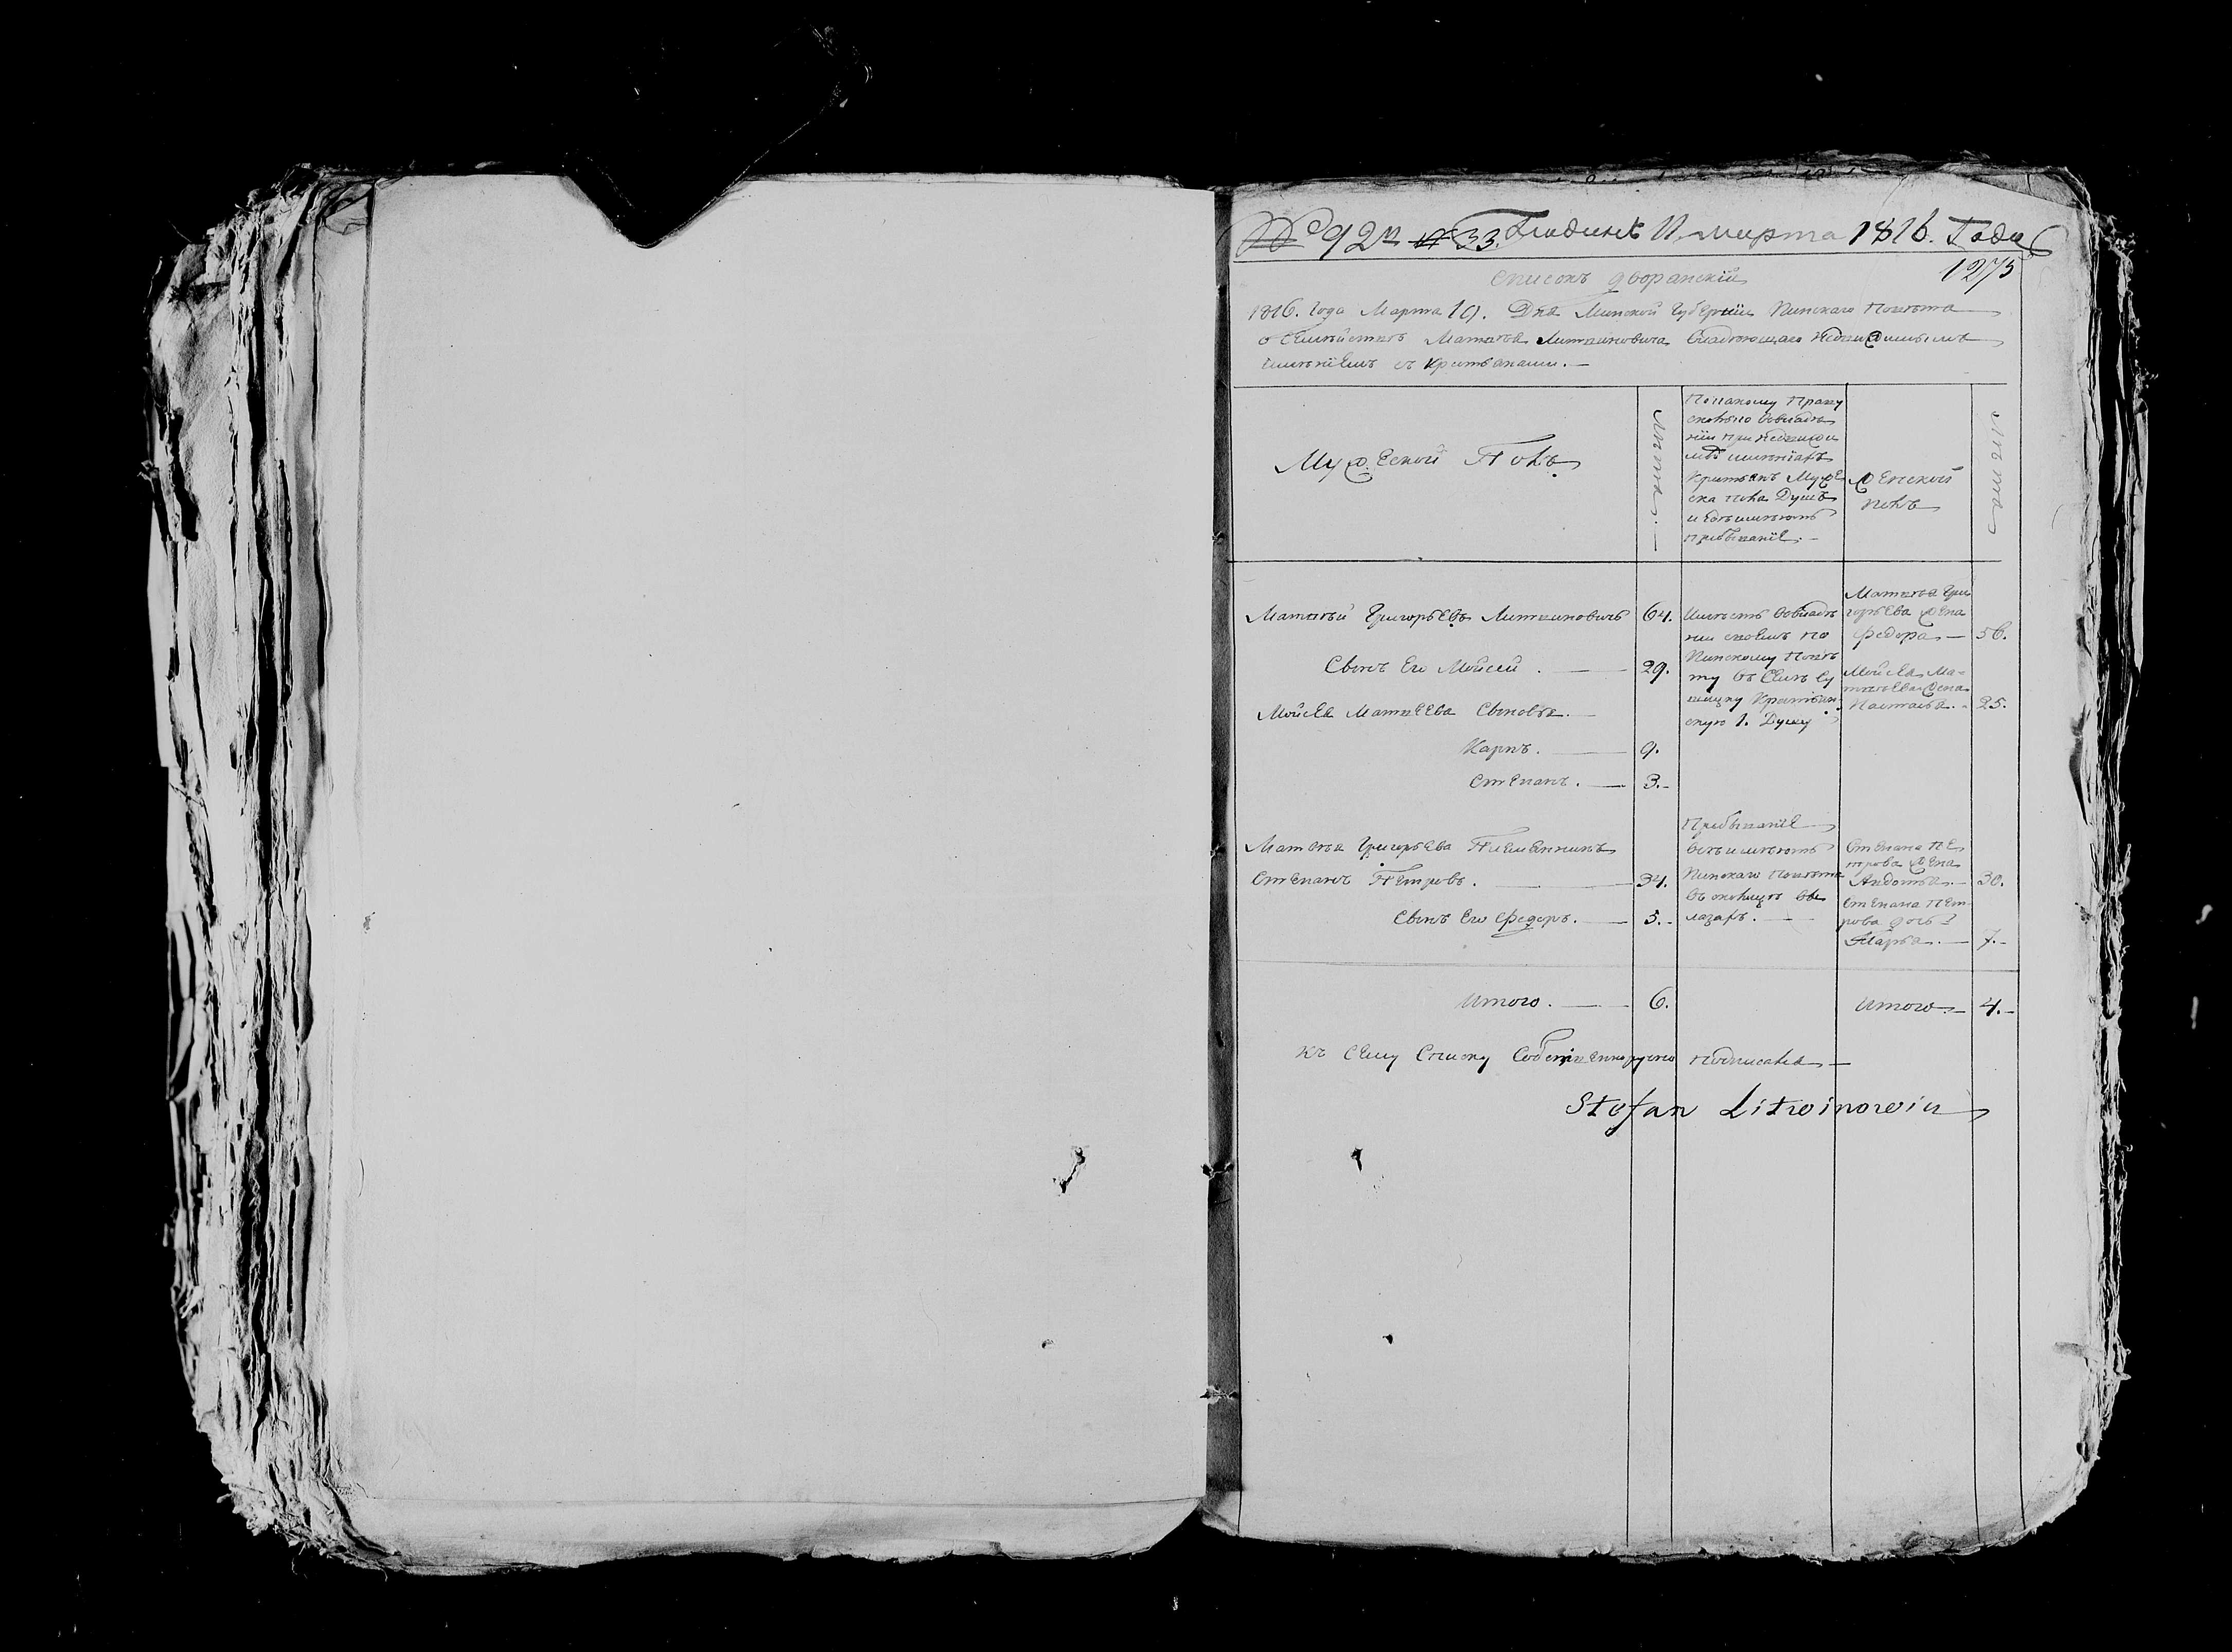 № 92й № 33. марта 1816. Года
1275
Списокъ дворанскій
1816. Года Марта 10. Дня Минской Губерніи Пинскаго Повѣта
о Семѣйствѣ Матвѣя Литвиновича Владеющаго Недвижимымъ
имѣніемъ съ Крѣтьянами. —
Мужеской Полъ
Лѣта. —
По какому Праву
сколько во владѣ
ніи при недвижи
мѣ имѣніахъ
Крѣтьянъ Муже
ска пола Душъ
и гдѣ имѣютъ
пребываніе. —
Женской
полъ
Лѣта
Матвѣй Григорьевъ Литвиновичъ 64.
Имѣетъ во владѣ
ніи своемъ по
Пинскому Повѣ
ту въ Селѣ
Крѣтьян
скую 1. Душу
Матвѣя Гри
горьева Жена
Федора — 56.
Сынъ Его Мойсей . — 29.
Мойсея Ма-
твѣева Жена
Настасья. - 25.
Мойсея Матвеева Сыновья. —
Карпъ. — 9.
Степанъ. — 3. -
Матвѣя Григорьева Племянникъ
Степанъ Петровъ. — 34.
Пребываніе
всѣ имѣютъ
Пинскаго Повѣта
въ околицѣ Вѣ
лазахъ. —
Степана Пе
трова Жена
Авдотья. — 30.
Сынъ Его Федоръ. — 5. -
Степана Пет
рова дочь
Марья. — 7. -
Итого. — 6.
Итого — 4. -
Къ Сему Списку Собственноручно подписался —
Stefan Litwinowicz